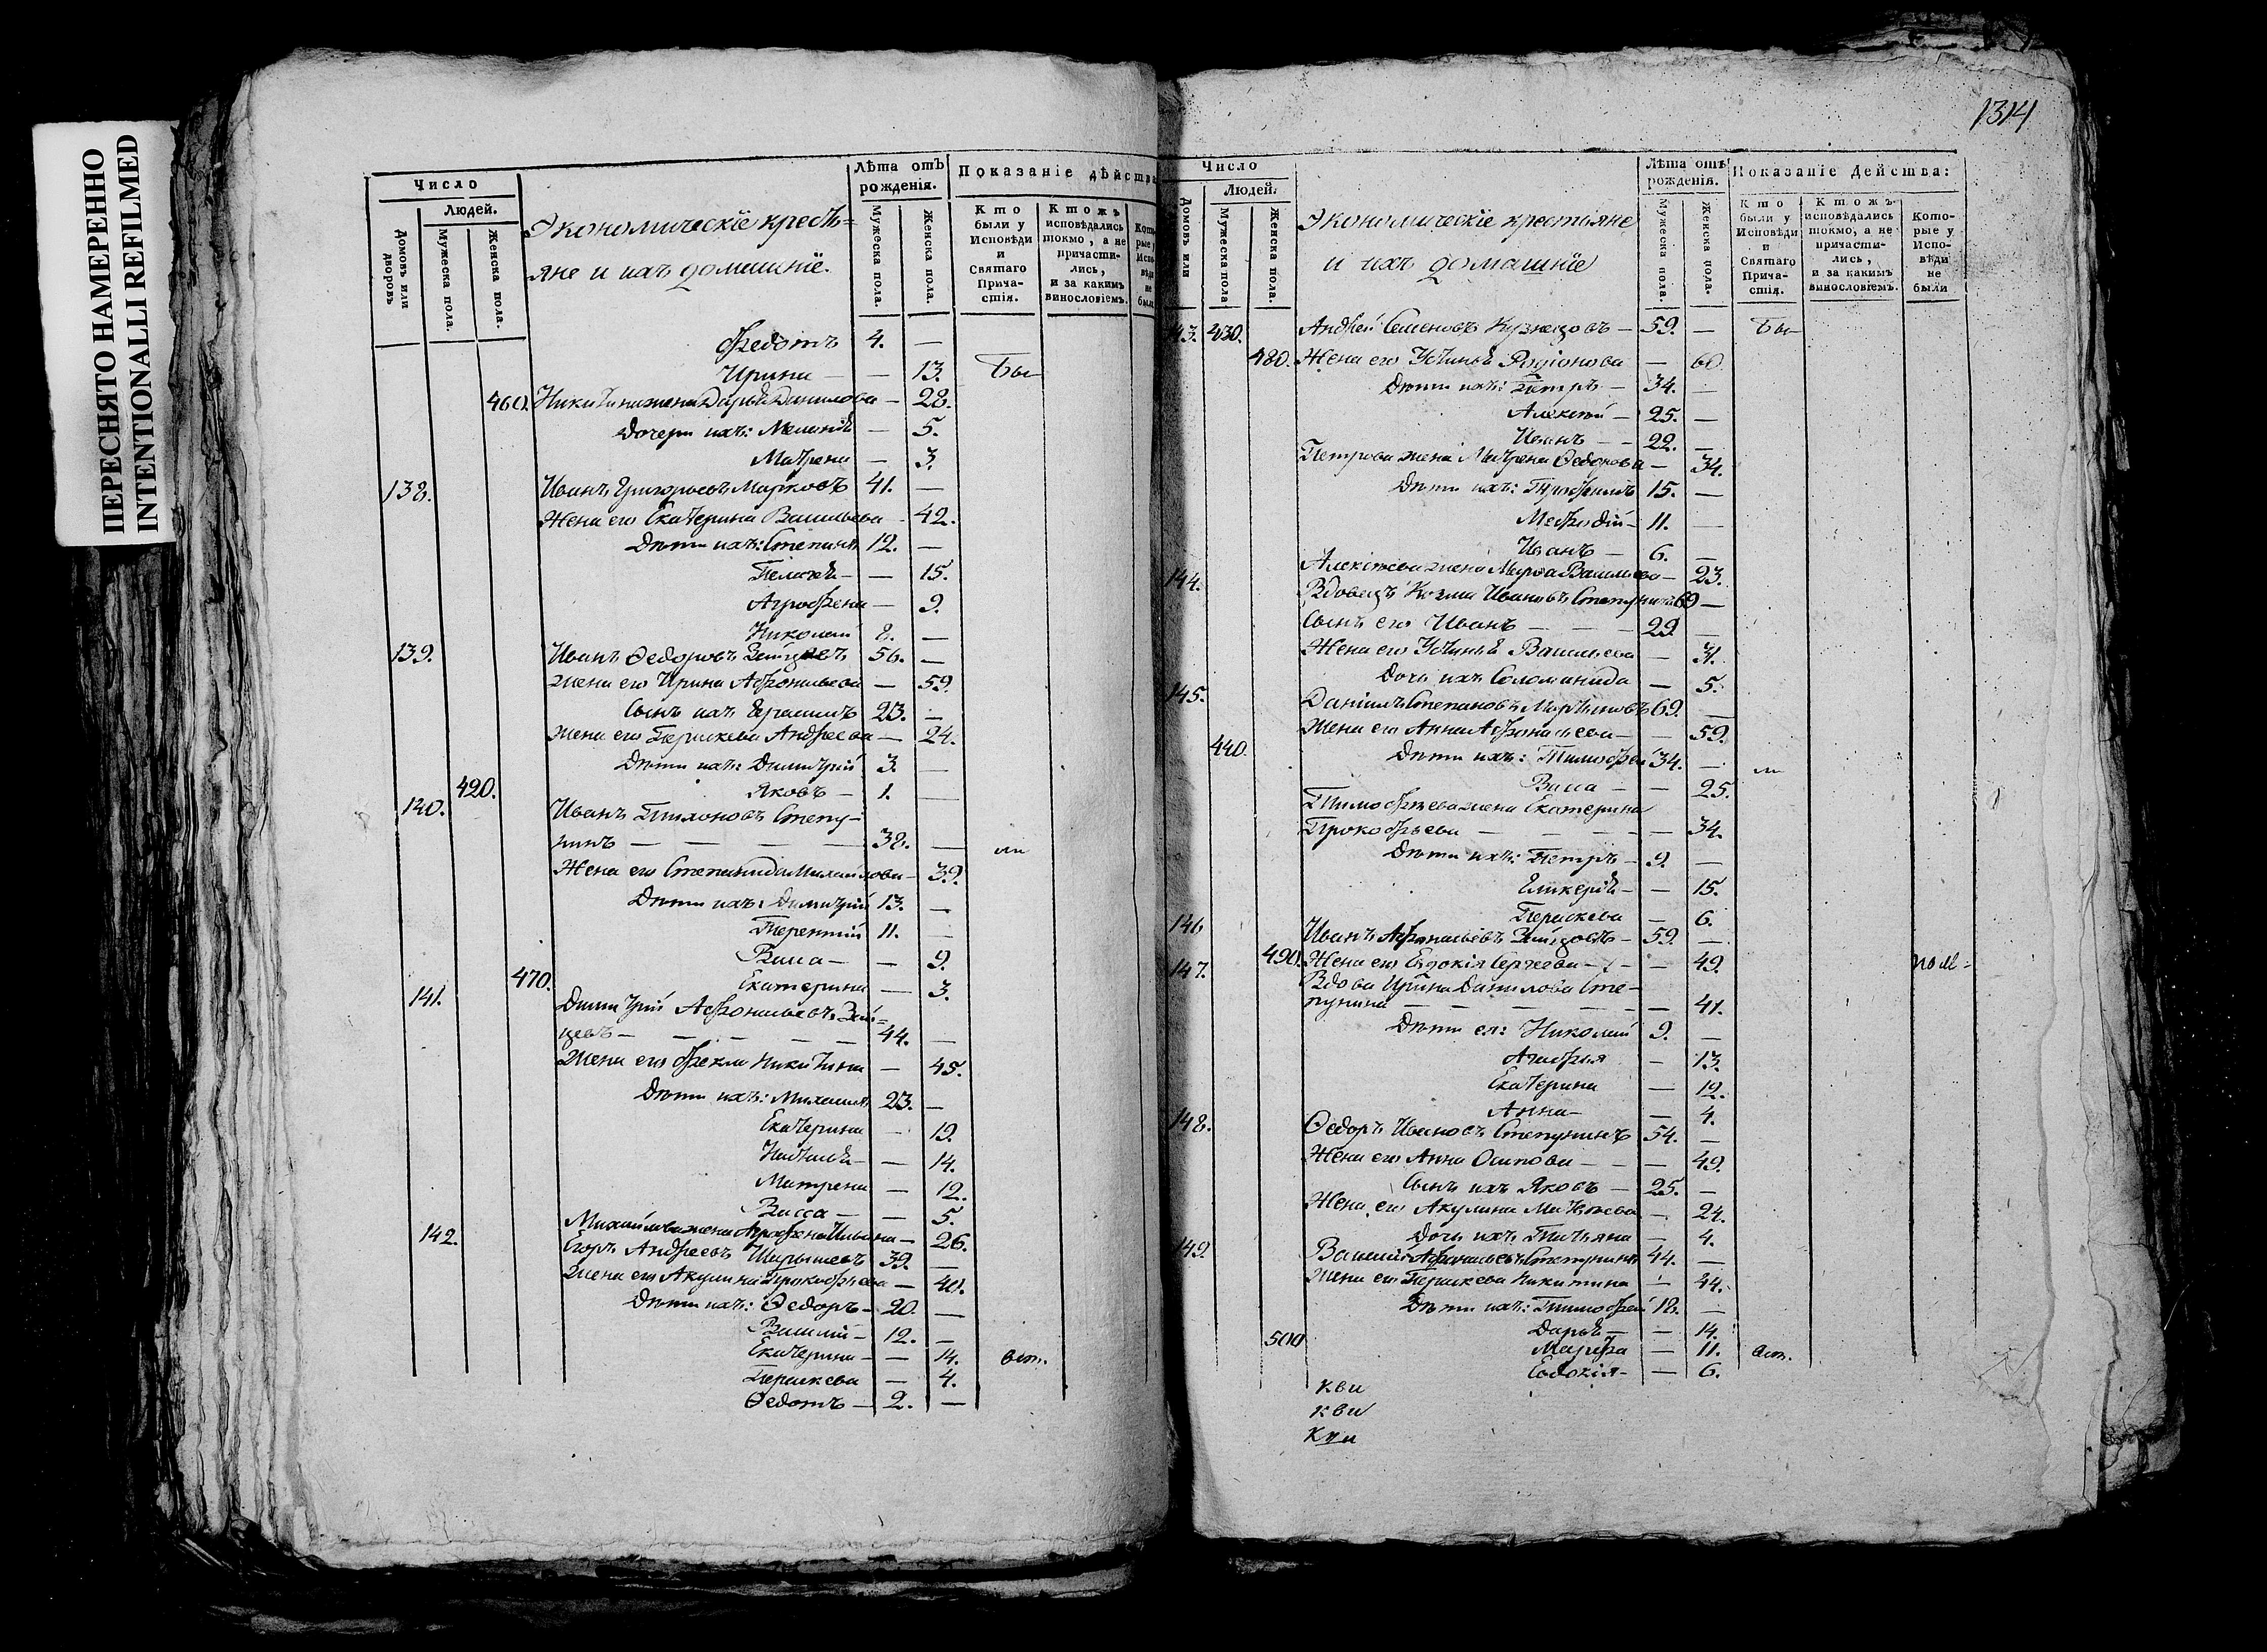 ПЕРЕСНЯТО НАМЕРЕННО
INTENTIONALLI REFILMED
Число
Людей.
Домовъ или дворовъ
Мужеска пола.
Женска пола.
Экономическіе кресть=
яне и ихъ домашніе.
Лѣта отъ рожденія.
Мужеска пола.
Женска пола.
Показаніе дѣйства
Кто были у Исповѣди и Святаго Причастія.
Ктожъ исповѣдались токмо, а не причастились, и за какимъ винословіемъ.
Федотъ 4. —
Ирина — 13. Бы
460. Никитина жена Дарья Данилова — 28.
Дочери ихъ: Меланія — 5.
Матрена — 3.
138. Иванъ Григорьевъ Марковъ 41. —
Жена его Екатерина Васильева — 42.
Дѣти ихъ: Степанъ 12. —
Пелагія — — 15.
Агрофена — 9.
Николай 8. —
139. Иванъ Ѳедоровъ Зайцевъ 56. —
Жена его Ирина Афонасьева — 59.
Сынъ ихъ Герасимъ 23. —
Жена его Параскева Андреева — 24.
Дѣти ихъ: Димитрій 3. —
420. Яковъ — 1. —
140. Иванъ Тихоновъ Степу-
нинъ — — — — 38. — ли
Жена его Степанида Михайлова — 39.
Дѣти ихъ: Димитрій 13. —
Терентій 11. —
Васса — — 9.
470. Екатерина — 3.
141. Димитрій Афонасьевъ Зай=
цевъ — — — — 44. —
Жена его Фекла Никитина — 45.
Дѣти ихъ: Михаилъ 23. —
Екатерина — 19.
Наталья — — 14.
Матрена — 12.
Васса — — 5.
Михайлова жена Агрофена Ильина — 26.
142. Егоръ Андреевъ Шарышевъ 39. —
Жена его Акулина Прокофьева — 40.
Дѣти ихъ: Ѳедоръ — 20. —
Василій — 12. —
Екатерина — — 14. вст.
Параскева — 4.
Ѳедотъ — 2. —
1314
Число
Людей.
Домовъ или
Мужеска пола
Женска пола.
Экономическіе крестьяне
и ихъ домашніе
Лѣта отъ рожденія.
Мужеска пола.
Женска пола.
Показаніе Действа:
Кто были у Исповѣди и Святаго Причастія.
Ктожъ исповѣдались токмо, а не причастились, и за какимъ винословіемъ.
Которые у Исповѣди не были
143. 430. Андрей Семеновъ Кузнецовъ — 59. — Бы
480. Жена его Устинья Родіонова — 60
Дѣти ихъ: Петръ — 34. —
Алексѣй — 25. —
Иванъ — — 22. —
Петрова жена Матрена Ѳедорова — 34.
Дѣти ихъ: Трофимъ 15. —
Мефодій — 11. —
Иванъ — 6. —
Алексѣева жена Марѳа Васильева — 23.
144. Вдовецъ Козма Ивановъ Степунинъ 69 —
Сынъ его Иванъ — — — 29. —
Жена его Устинья Васильева — 31.
Дочь ихъ Соломанида — 5.
145. Даніилъ Степановъ Мартиновъ 69. —
Жена его Анна Афонасьева — — 59.
440. Дѣти ихъ: Тимофей 34. — ли
Васса — — 25.
Тимофѣева жена Екатерина
Прокофьева — — — — 34.
Дѣти ихъ: Петръ — 9. —
Гликерія — — 15.
Параскева — 6.
146. Иванъ Афонасьевъ Зайцовъ — 59. —
490. Жена его Евдокія Сергеева — — 49.
147. Вдова Ирина Данилова Сте-
пунина — — — — 41.
Дѣти ея: Николай 9. —
Агафья — 13.
Екатерина — 12.
Анна — — 4.
148. Ѳедоръ Ивановъ Степунинъ 54. —
Жена его Анна Осипова — — — 49.
Сынъ ихъ Яковъ — 25. —
Жена его Акулина Матвѣева — 24.
Дочь ихъ Татьяна — 4.
149. Василій Афонасьевъ Степунинъ 44. —
Жена его Параскева Никитина — 44.
Дѣти ихъ: Тимофей 18. —
Дарья — — 14.
500 Марфа — 11. вст.
Евдокія — — 6.